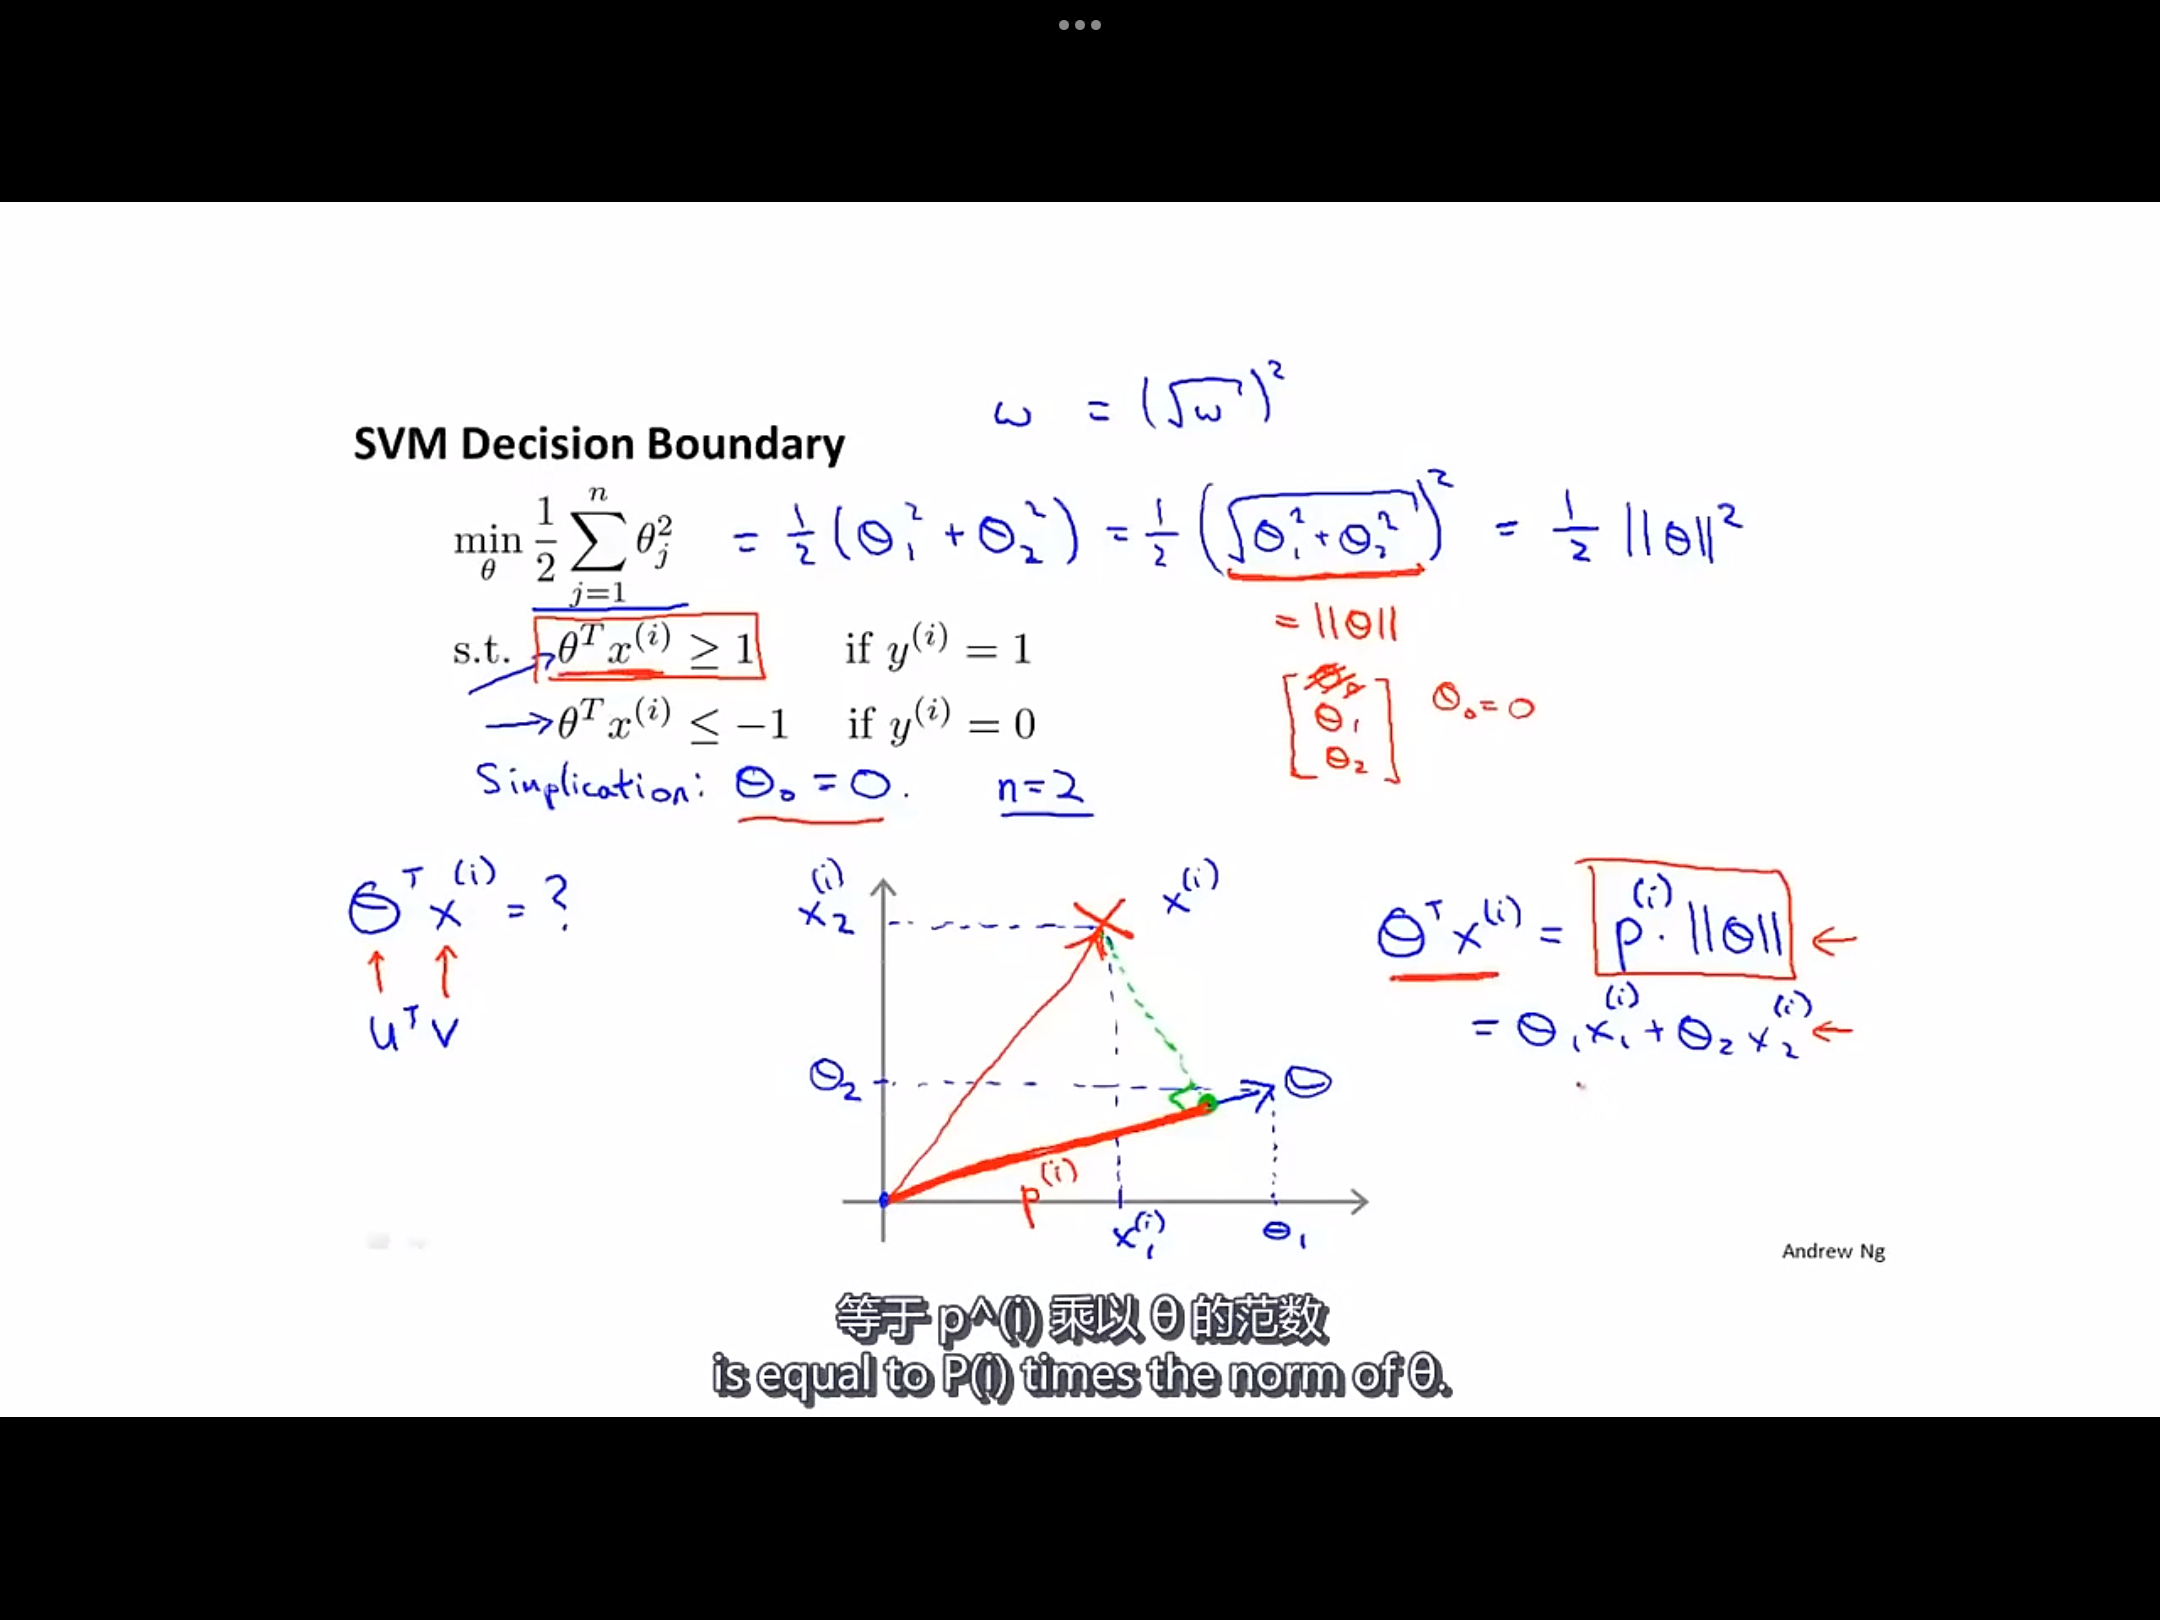 ω = (√ω)²
SVM Decision Boundary
min_θ 1/2 ∑_{j=1}^{n} θ_j² = 1/2 (θ₁² + θ₂²) = 1/2 (√(θ₁² + θ₂²))² = 1/2 ||θ||²
= ||θ||
s.t. θᵀx⁽ⁱ⁾ ≥ 1 if y⁽ⁱ⁾ = 1
[θ₀ θ₁ θ₂] θ₀ = 0
θᵀx⁽ⁱ⁾ ≤ −1 if y⁽ⁱ⁾ = 0
Simplication: θ₀ = 0. n = 2
θᵀx⁽ⁱ⁾ = ?
uᵀv
x₂⁽ⁱ⁾ x⁽ⁱ⁾
θ₂ θ
p⁽ⁱ⁾
x₁⁽ⁱ⁾ θ₁
θᵀx⁽ⁱ⁾ = p⁽ⁱ⁾ · ||θ|| ←
= θ₁x₁⁽ⁱ⁾ + θ₂x₂⁽ⁱ⁾ ←
Andrew Ng
等于 p^(i) 乘以 θ 的范数
is equal to P(i) times the norm of θ.